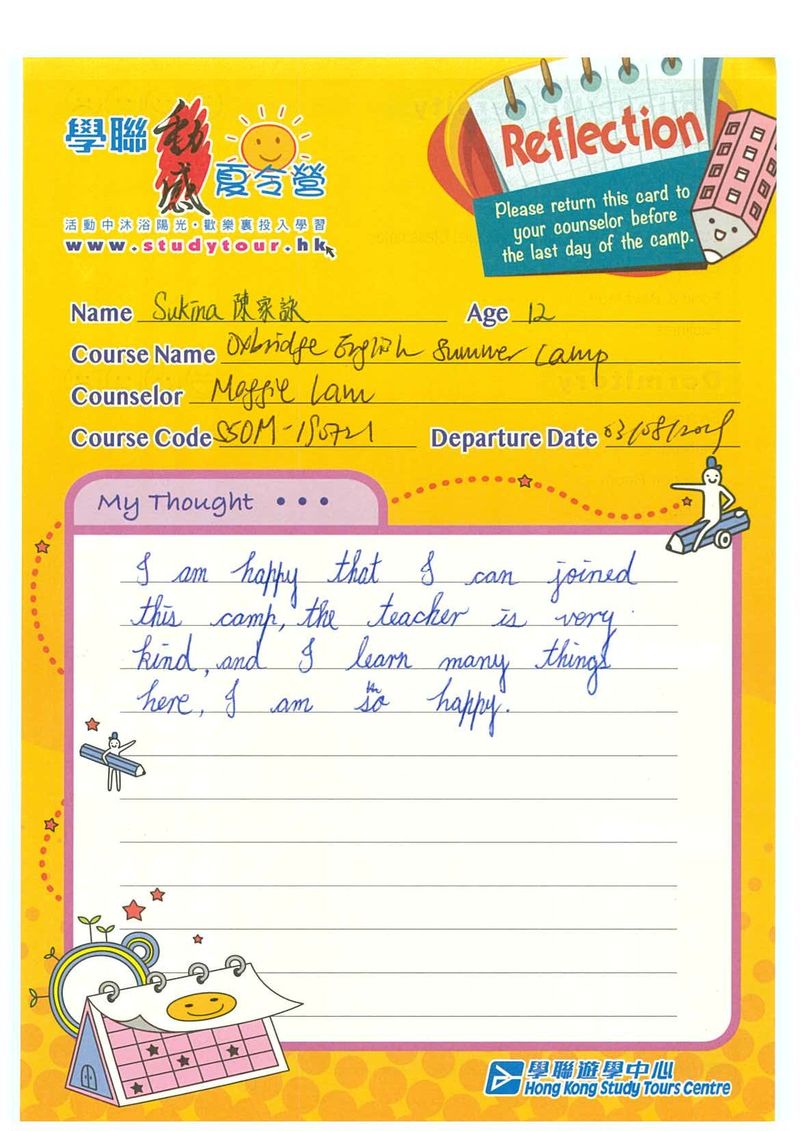 學聯 動感 夏令營
活動中沐浴陽光・歡樂裏投入學習
www.studytour.hk
Reflection
Please return this card to
your counselor before
the last day of the camp.
Name Sukina 陳家詠 Age 12
Course Name Oxbridge English Summer Camp
Counselor Maggie Lam
Course Code SSOM-190721 Departure Date 03/08/2019
My Thought • • •
I am happy that I can joined
this camp, the teacher is very
kind, and I learn many things
here, I am so happy.
學聯遊學中心
Hong Kong Study Tours Centre